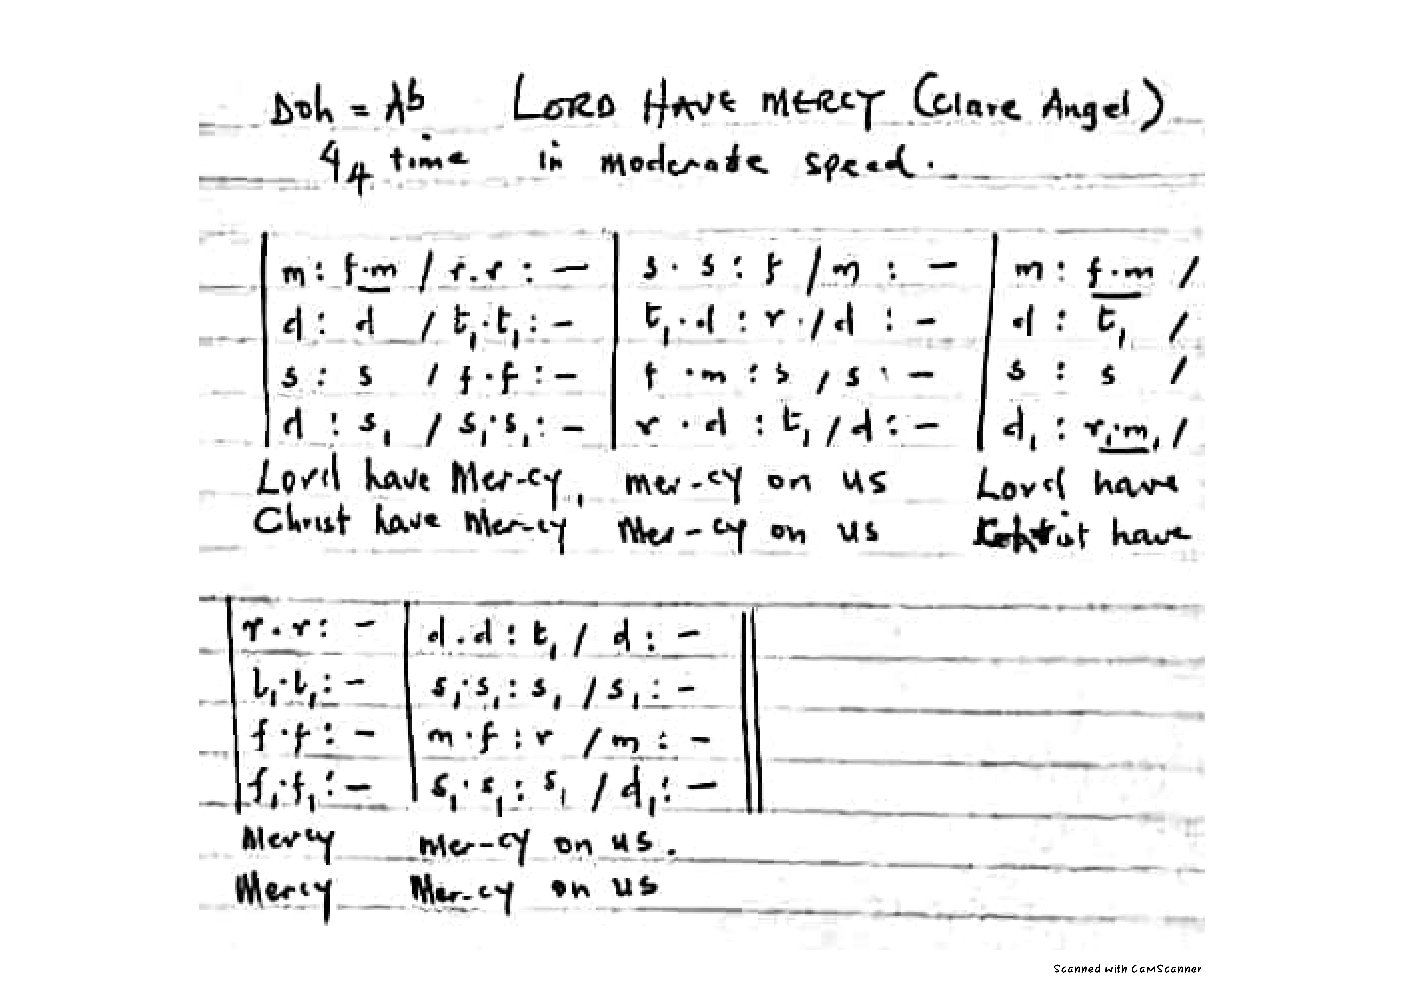 Doh = Ab LORD HAVE MERCY (Clare Angel)
4/4 time in moderate speed.
| m : f.m / r.r : — | s . s : f / m : — | m : f.m /
| d : d / t₁.t₁ : — | t₁.d : r . / d : — | d : t₁ /
| s : s / f.f : — | f .m : s / s : — | s : s /
| d : s₁ / s₁.s₁ : — | r . d : t₁ / d : — | d₁ : r₁.m₁ /
Lord have Mer-cy, mer-cy on us Lord have
Christ have Mer-cy Mer-cy on us have
| r.r : — | d.d : t₁ / d : — ||
| t₁.t₁ : — | s₁.s₁ : s₁ / s₁ : — ||
| f.f : — | m.f : r / m : — ||
| f₁.f₁ : — | s₁.s₁ : s₁ / d₁ : — ||
Mercy mer-cy on us.
Mercy Mer-cy on us
Scanned with CamScanner